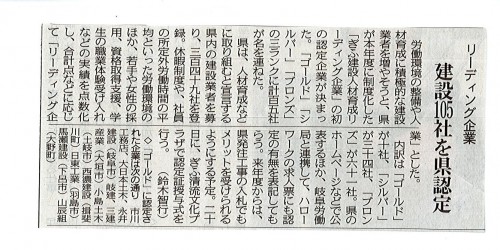 リーディング企業
建設105社を県認定
労働環境の整備や人
材育成に積極的な建設
業者を増やそうと、県
が本年度に制度化した
「ぎふ建設人材育成リ
ーディング企業」の初
の認定企業が決まっ
た。「ゴールド」「シ
ルバー」「ブロンズ」
の三ランクに計百五社
が名を連ねた。
県は、人材育成など
に取り組むと宣言する
県内の建設業者を募
り、三百四十九社を登
録。休暇制度や、社員
の所定外労働時間の平
均といった労働環境の
ほか、若手や女性の採
用、資格取得支援、学
生の職業体験受け入れ
などの実績を点数化
し、合計点などに応じ
て「リーディング企
業」とした。
内訳は「ゴールド」
が十社、「シルバー」
が三十四社、「ブロン
ズ」が六十一社。県の
ホームページなどで公
表するほか、岐阜労働
局と連携して、ハロー
ワークの求人票にも認
定の有無を表記しても
らう。来年度からは、
県発注工事の入札でも
メリットを受けられる
ようにする予定。二十
日に、ぎふ清流文化プ
ラザで認定証授与式を
行う。（鈴木智行）
◇「ゴールド」に認定さ
れた企業は次の通り 市川
工務店、大日本土木、永井
建設（岐阜市）岐建、三建
産業（大垣市）小島土木
（土岐市）西濃建設（揖斐
川町）日東工業（羽島市）
馬瀬建設（下呂市）山辰組
（大野町）